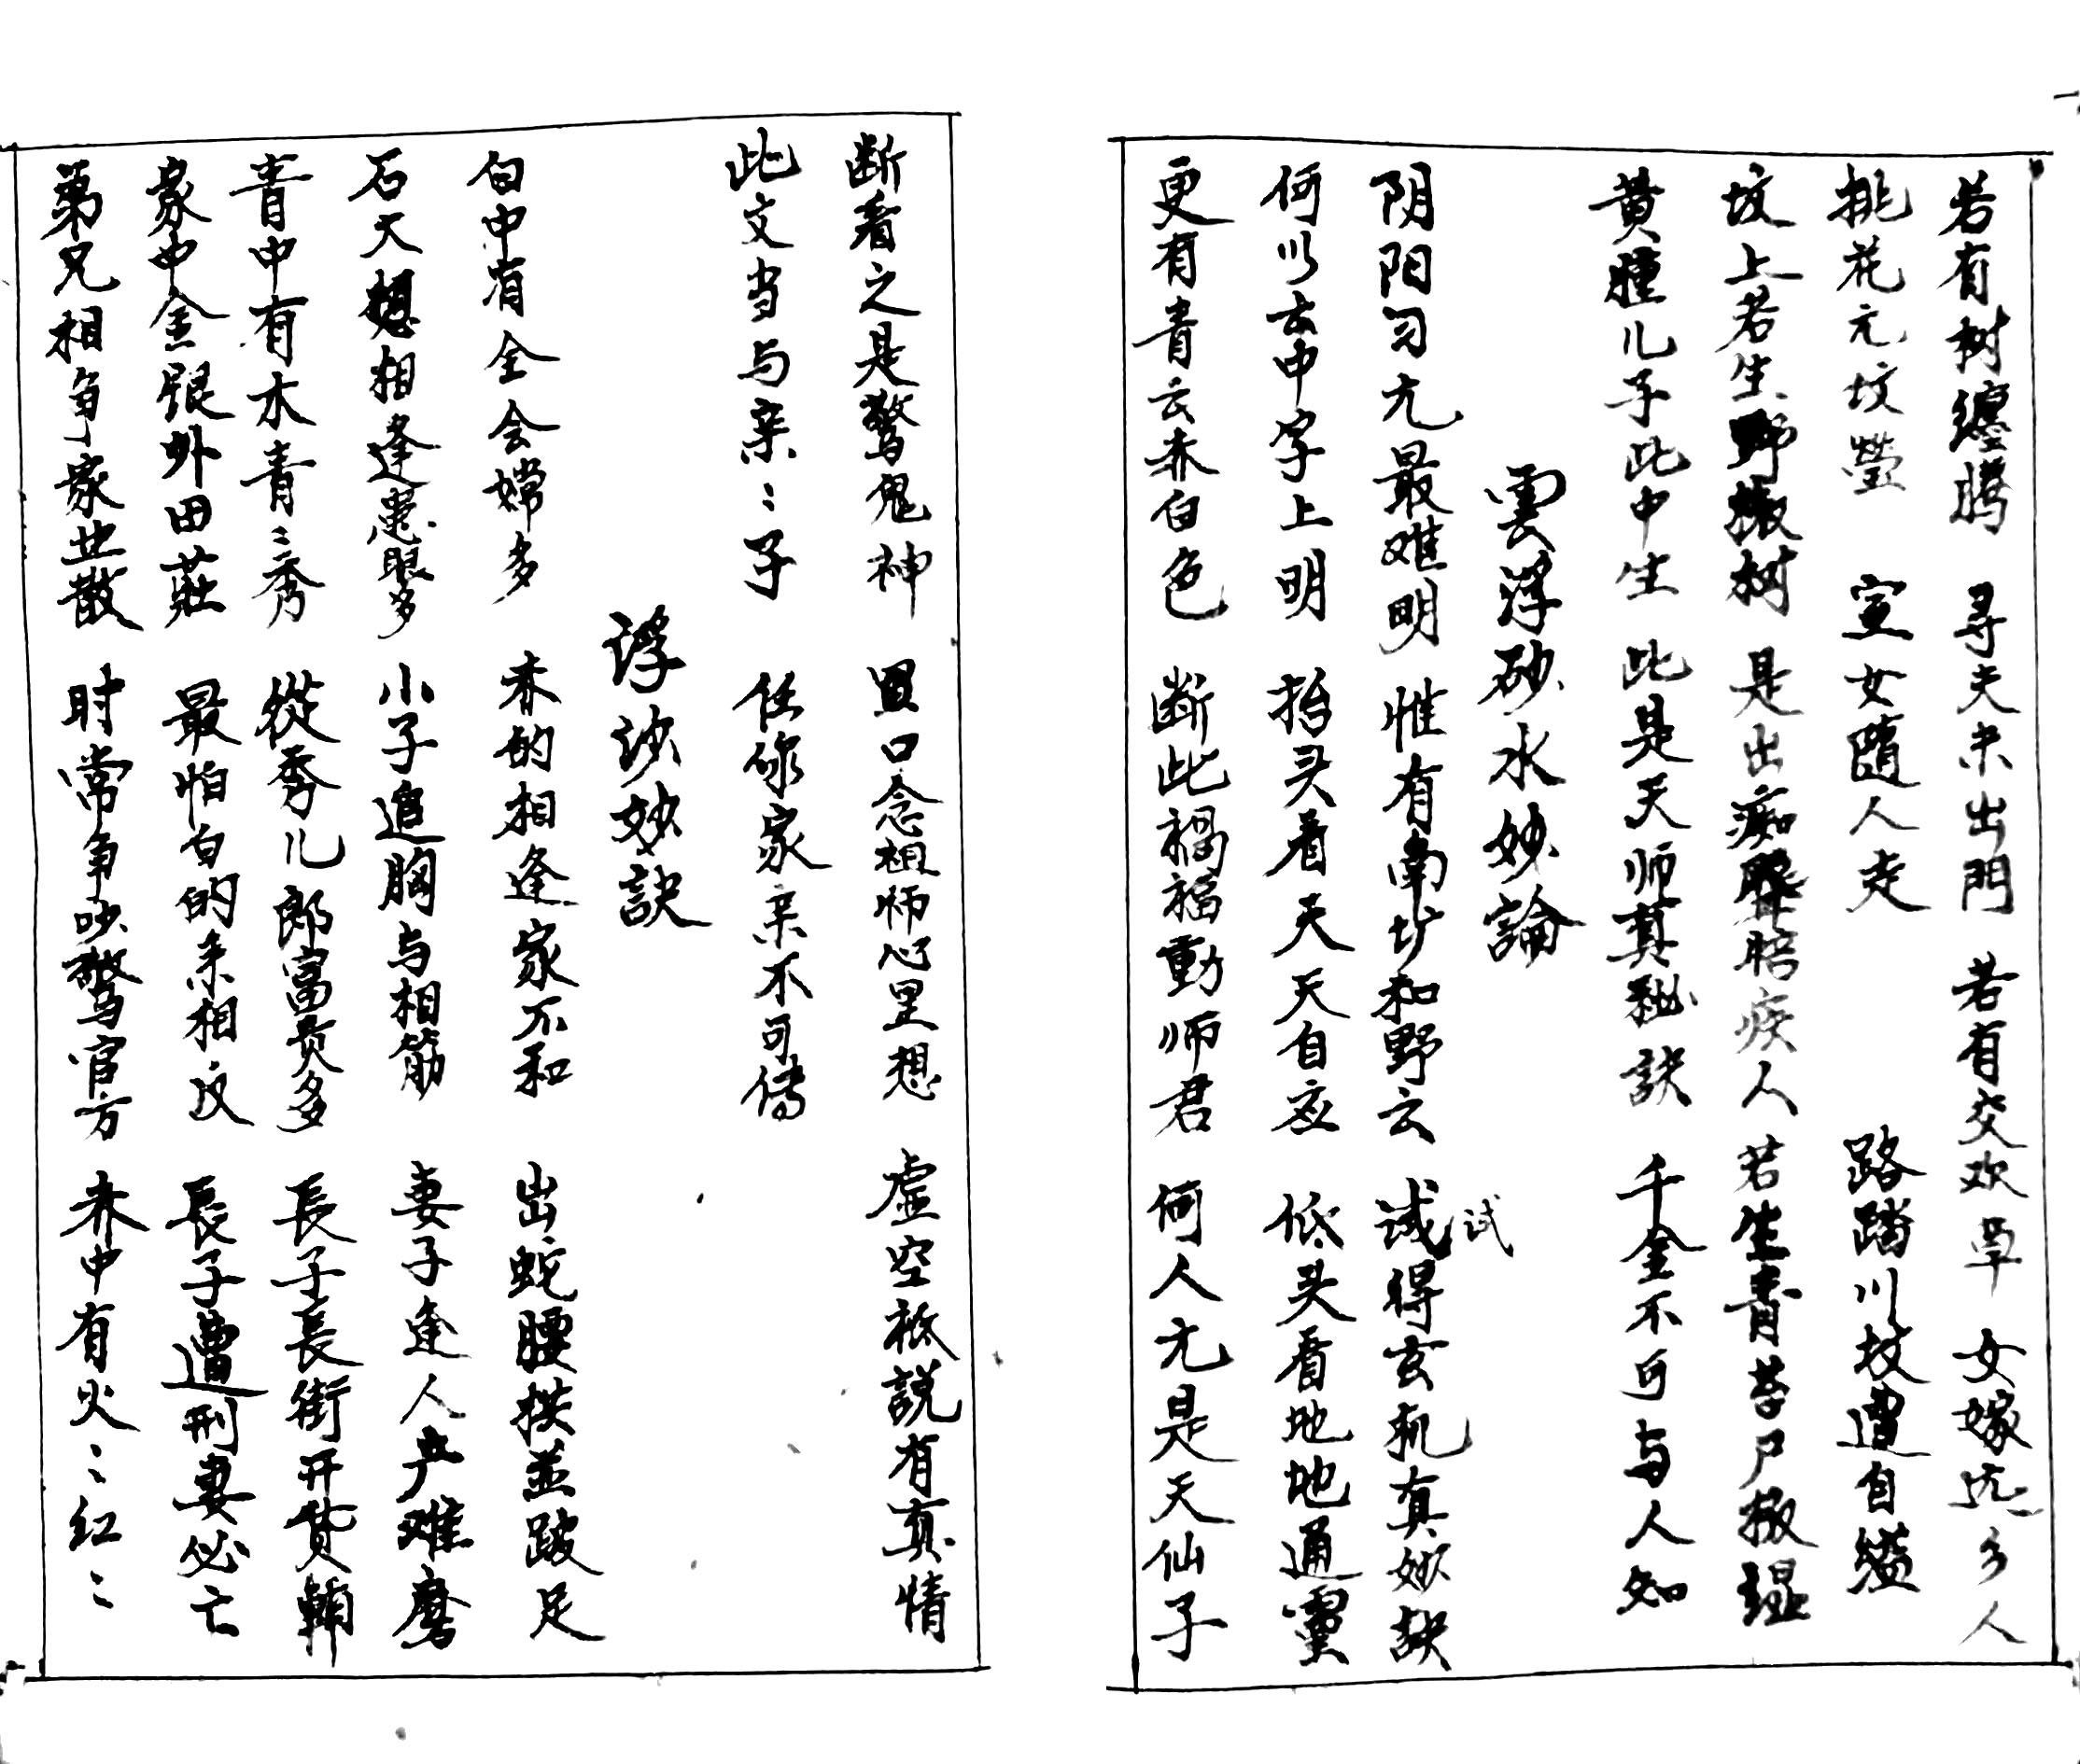 若有树缠腾 寻夫未出門 若有交欢草 女嫁远乡人
挑花元坟瑩 室女随人走 路踏川坟遭自縊
坟上若生野振树 是出痴聾暗疾人 若生青苔尸振湿
黄腫儿子此中生 此是天师真秘訣 千金不可与人知
雲浮砂水妙論
阴阳习尢最难明 惟有南坊和野云 试得玄机真妙訣
试
何以去中字上明 抬头看天天自应 低头看地地通靈
更有青云赤白色 断此禍福動师君 何人尢是天仙子
断看之是驚鬼神 置口念祖师心里想 虚空祗説有真情
此文当与亲〻子 任你家亲不可传
浮沙妙訣
白中有全会嫦多 赤的相逢家不和 出蛇腰拱並跛足
石天想相逢患眼多 小子追胸与相筋 妻子逢人产难磨
青中有木青〻秀 後秀儿郎富贵多 長子長街开货鋪
家中金银外田莊 最怕白的来相反 長子遭刑妻必亡
弟兄相争家业散 时常争吵驚官方 赤中有火〻红〻